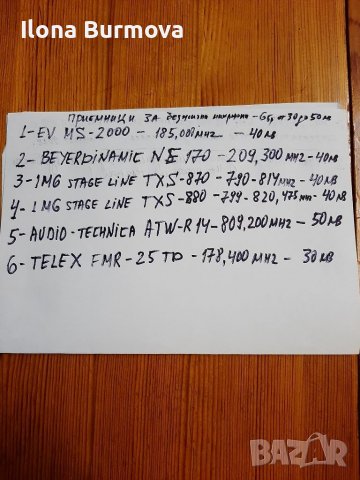 Ilona Burmova
ПРИЕМНИЦИ ЗА безжични микрофони - 6бр от 30 до 50лв
1-EV MS-2000 - 185,001мнz - 40лв
2- BEYERDINAMIC NE 170 - 209,300 мнz - 40лв
3- IMG STAGE LINE TXS-870 - 790-814мнz - 40лв
4- IMG STAGE LINE TXS-880 - 799-820,475мнz - 40лв
5- AUDIO-TECHNICA ATW-R14-809,200мнz - 50лв
6- TELEX FMR-25 TD - 178,400мнz - 30лв
BAZAR